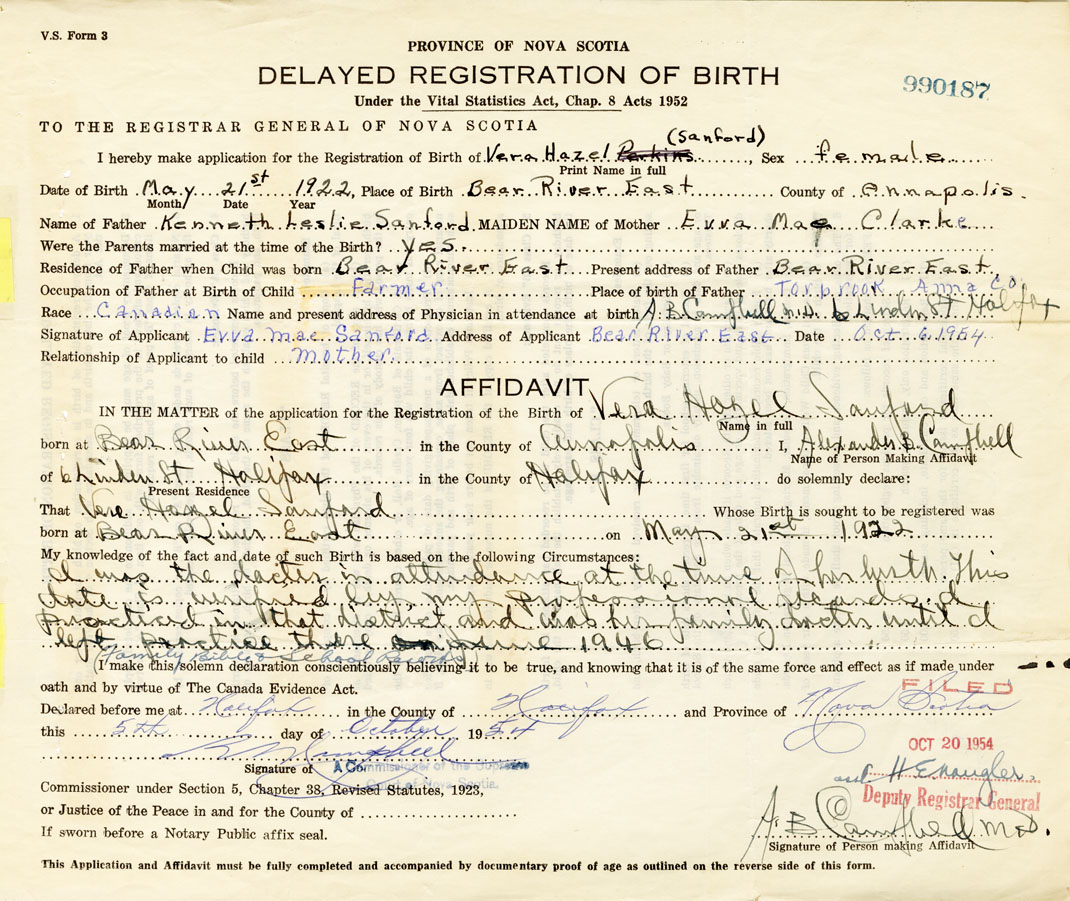 V.S. Form 3
PROVINCE OF NOVA SCOTIA
DELAYED REGISTRATION OF BIRTH
990187
Under the Vital Statistics Act, Chap. 8 Acts 1952
TO THE REGISTRAR GENERAL OF NOVA SCOTIA
(Sanford)
I hereby make application for the Registration of Birth of Vera Hazel Perkins, Sex female
Print Name in full
Date of Birth May 21st 1922, Place of Birth Bear River East County of Annapolis.
Month Date Year
Name of Father Kenneth Leslie Sanford MAIDEN NAME of Mother Evva Mae Clarke
Were the Parents married at the time of the Birth? yes.
Residence of Father when Child was born Bear River East Present address of Father Bear River East,
Occupation of Father at Birth of Child Farmer Place of birth of Father Torbrook Anna Co
Race Canadian Name and present address of Physician in attendance at birth A.B. Campbell M.D. 6 Linden St Halifax
Signature of Applicant Evva mae Sanford Address of Applicant Bear River East Date Oct 6, 1954
Relationship of Applicant to child mother
AFFIDAVIT
IN THE MATTER of the application for the Registration of the Birth of Vera Hazel Sanford
Name in full
born at Bear River East in the County of Annapolis I, Alexander B. Campbell
Name of Person Making Affidavit
of 6 Linden St. Halifax in the County of Halifax do solemnly declare:
Present Residence
That Vera Hazel Sanford Whose Birth is sought to be registered was
born at Bear River East on May 21st 1922
My knowledge of the fact and date of such Birth is based on the following Circumstances:
I was the doctor in attendance at the time of her birth. This
date is verified by my professional records. I
practiced in that district and was her family doctor until I
left practice there in June 1946
(Family Bible & School Records)
I make this solemn declaration conscientiously believing it to be true, and knowing that it is of the same force and effect as if made under
oath and by virtue of The Canada Evidence Act.
FILED
Declared before me at Halifax in the County of Halifax and Province of Nova Scotia
this 5th day of October 1954
OCT 20 1954
Campbell
Signature of A Commissioner of the Supreme
Court of Nova Scotia.
Commissioner under Section 5, Chapter 38, Revised Statutes, 1923,
Deputy Registrar General
or Justice of the Peace in and for the County of
If sworn before a Notary Public affix seal.
A B Campbell M.D.
Signature of Person making Affidavit
This Application and Affidavit must be fully completed and accompanied by documentary proof of age as outlined on the reverse side of this form.